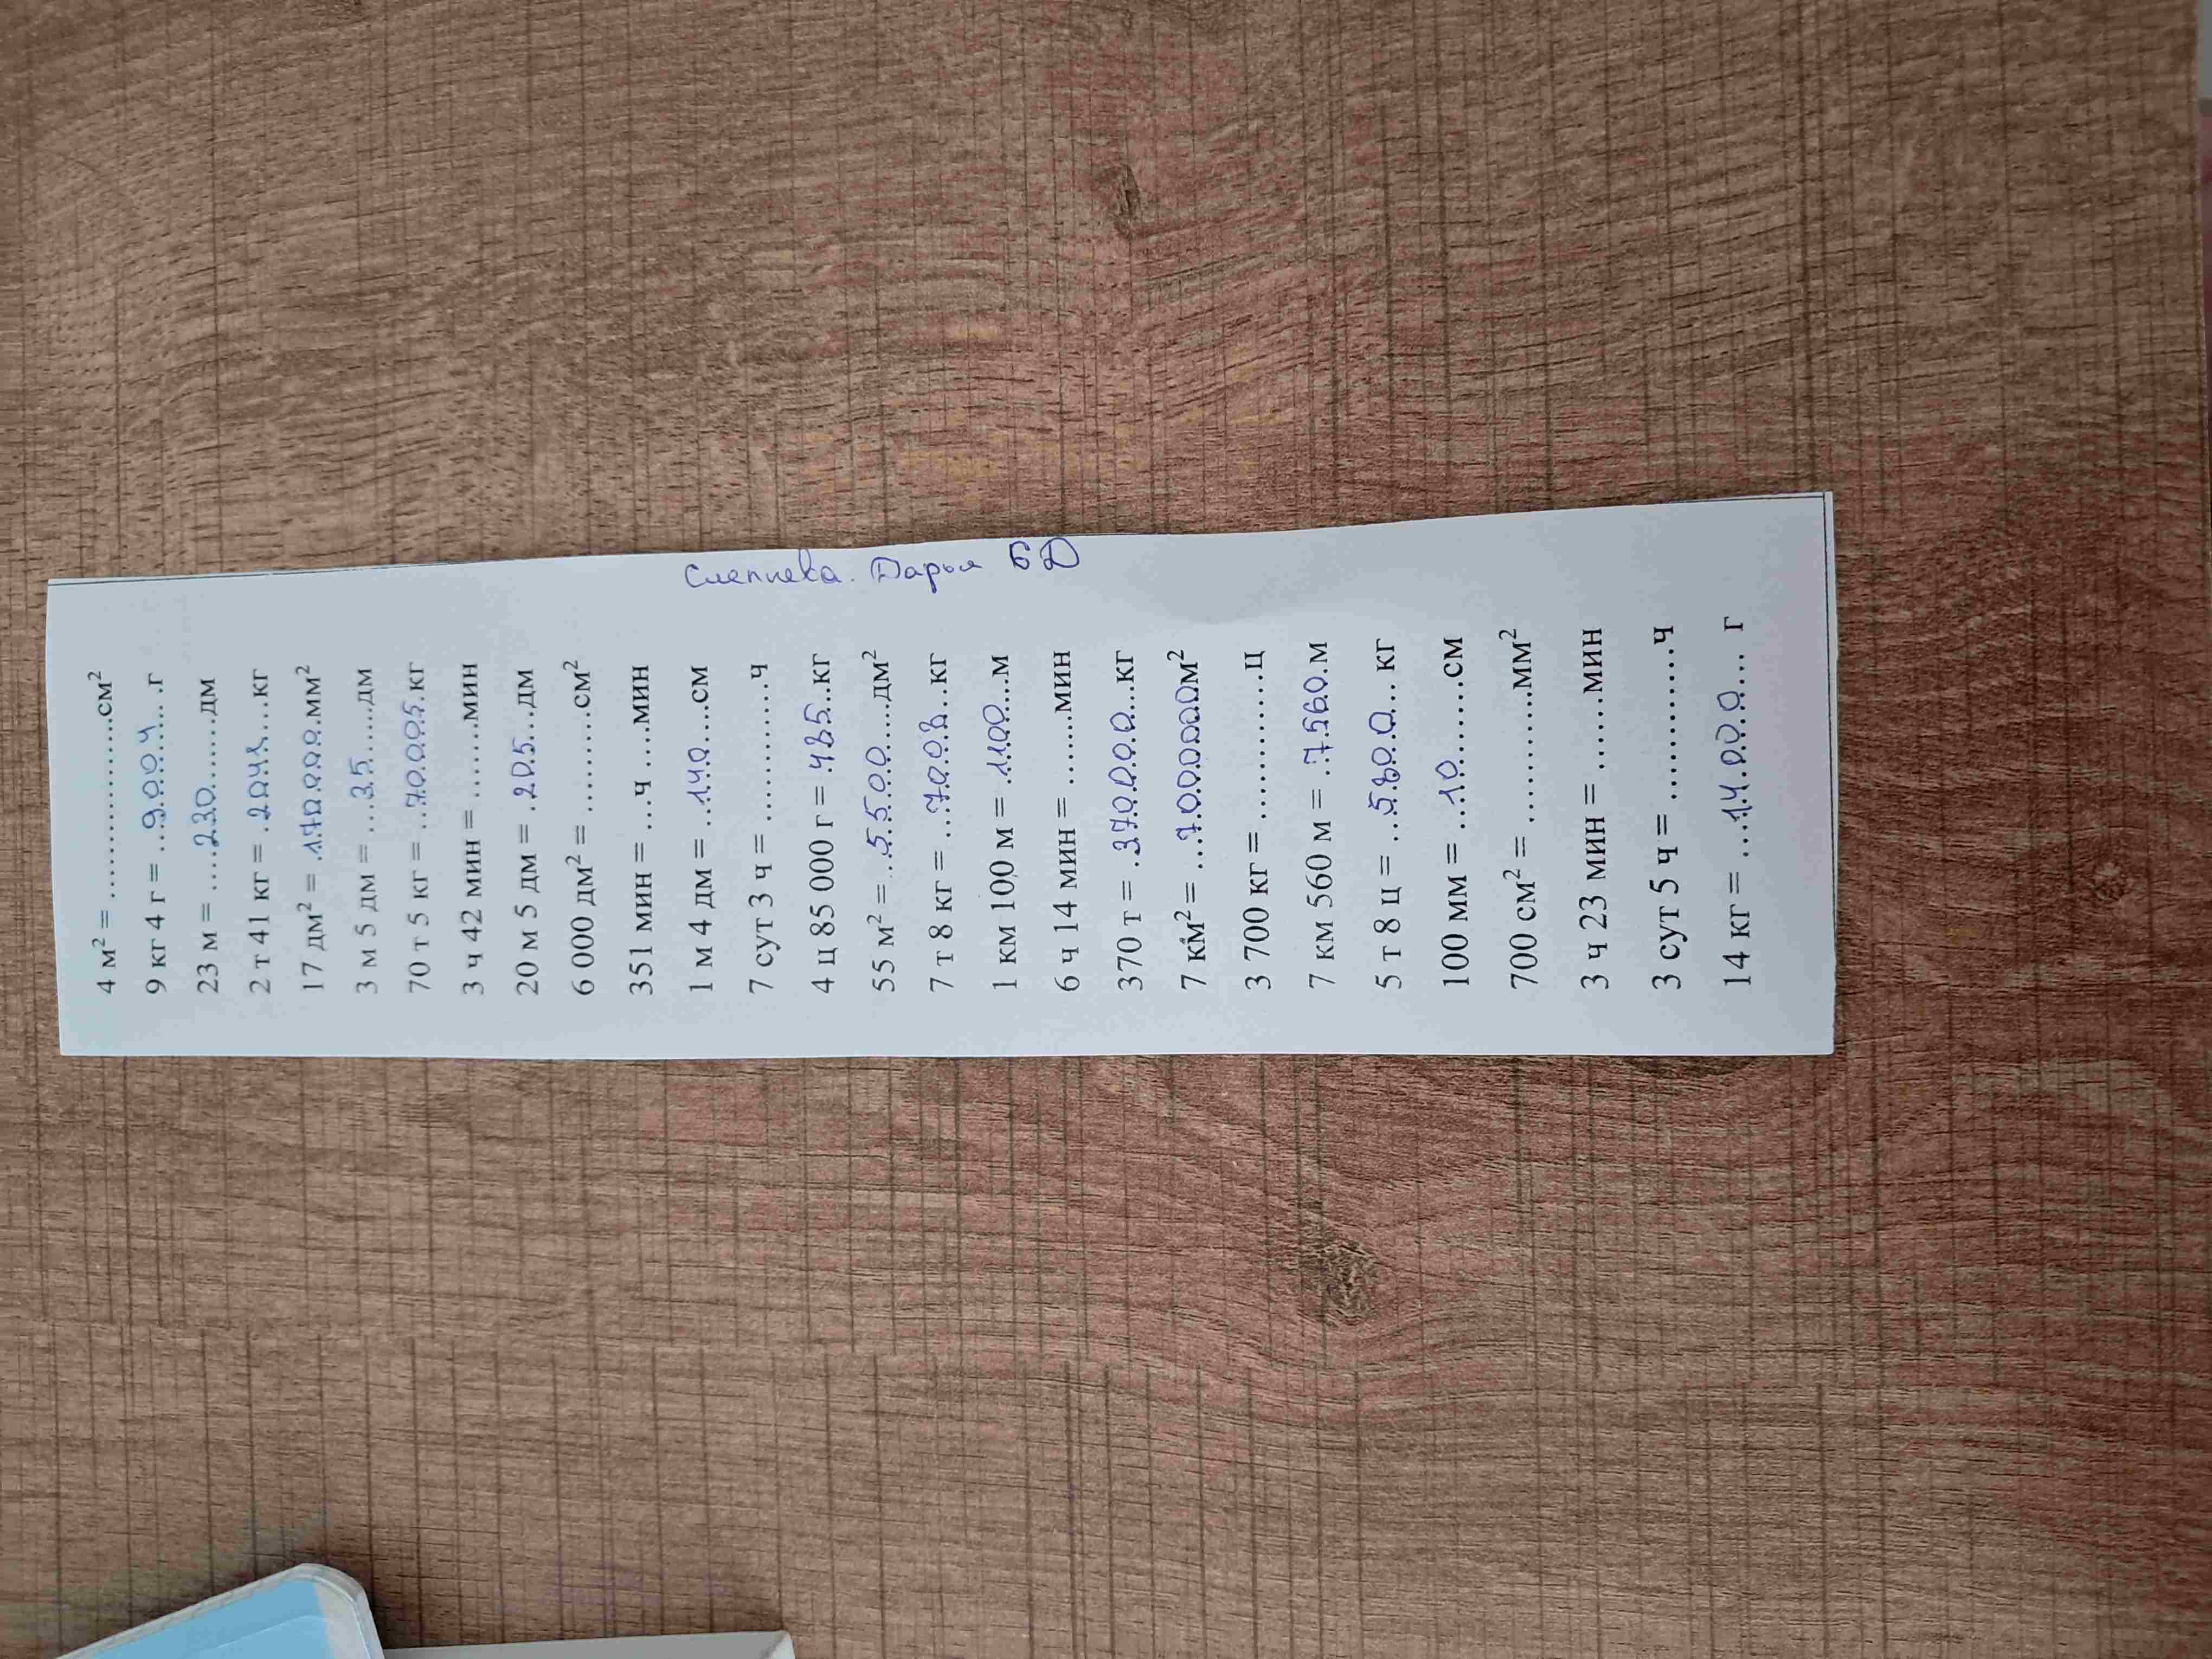 4 м² = ........................см²
9 кг 4 г = ...9.0.0.4.... .г
23 м = ....230........дм
2 т 41 кг = .2041.....кг
17 дм² = .170000.мм²
3 м 5 дм = ....35......дм
70 т 5 кг = ...70005.кг
3 ч 42 мин = ........мин
20 м 5 дм = .205...дм
6 000 дм² = ..........см²
351 мин = ....ч .....мин
1 м 4 дм = ...140....см
7 сут 3 ч = ..............ч
4 ц 85 000 г = .485..кг
55 м² = ...5500.....дм²
7 т 8 кг = ....7008...кг
1 км 100 м = .1100...м
6 ч 14 мин = ........мин
370 т = .370000...кг
7 км² = ....7000000м²
3 700 кг = ..............ц
7 км 560 м = ..7560.м
5 т 8 ц = ...5800... кг
100 мм = ...10........см
700 см² = .............мм²
3 ч 23 мин = .......мин
3 сут 5 ч = .............ч
14 кг = ....14000... г
Дарья 5Д